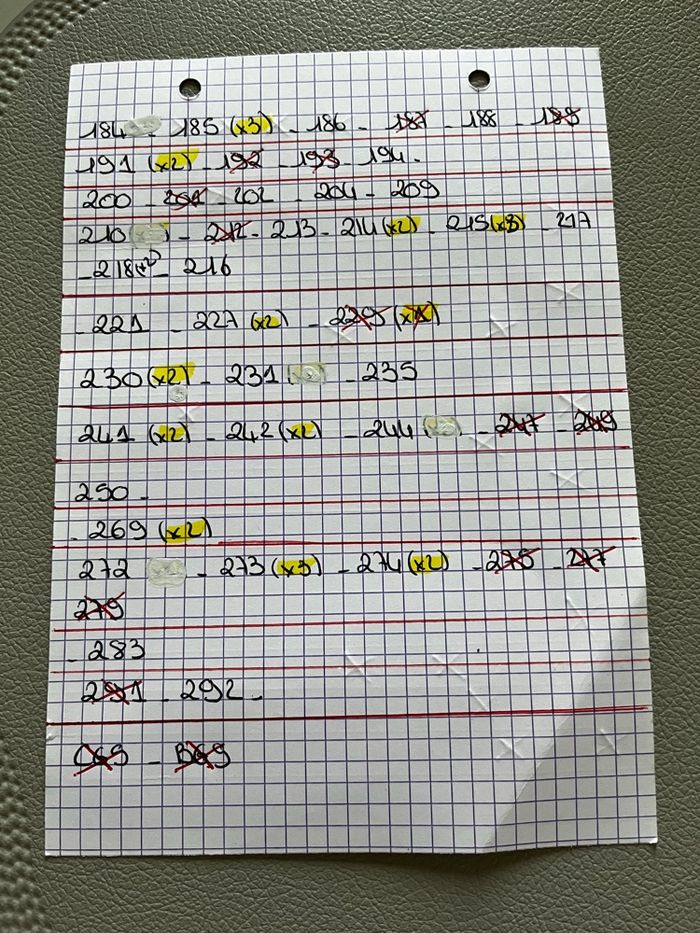 184 - 185 (x3) - 186 - 187 - 188 - 189
191 (x2) - 192 - 193 - 194 -
200 - 201 - 202 - 204 - 209
210 ( ) - 212 - 213 - 214 (x2) - 215 (x3) - 217
- 218 (x2) - 216
221 - 227 (x2) - 229 (x1)
230 (x2) - 231 ( ) - 235
241 (x2) - 242 (x2) - 244 ( ) - 247 - 249
250 -
- 269 (x2)
272 - 273 (x3) - 274 (x2) - 275 - 277
279
- 283
291 - 292 -
C69 - B69